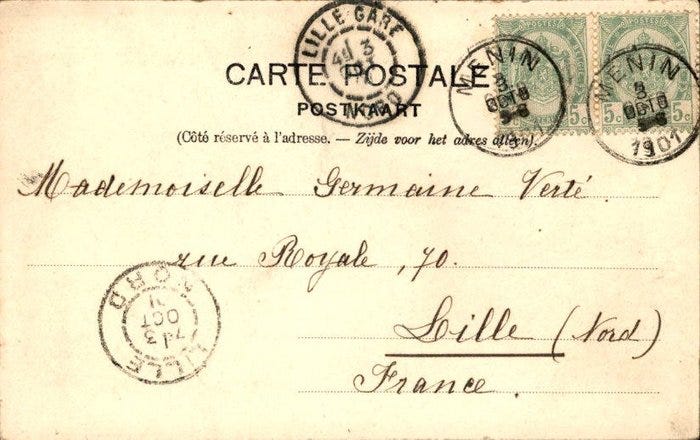 LILLE GARE
3
NORD
POSTES
POSTES
MENIN
3
OCTO
5-6
1901
MENIN
3
OCTO
5-6
1901
5c
5c
5c
CARTE POSTALE
POSTKAART
(Côté réservé à l'adresse. — Zijde voor het adres alleen).
Mademoiselle Germaine Verté
rue Royale, 70.
Lille (Nord)
France.
LILLE
7E 3
OCT
NORD